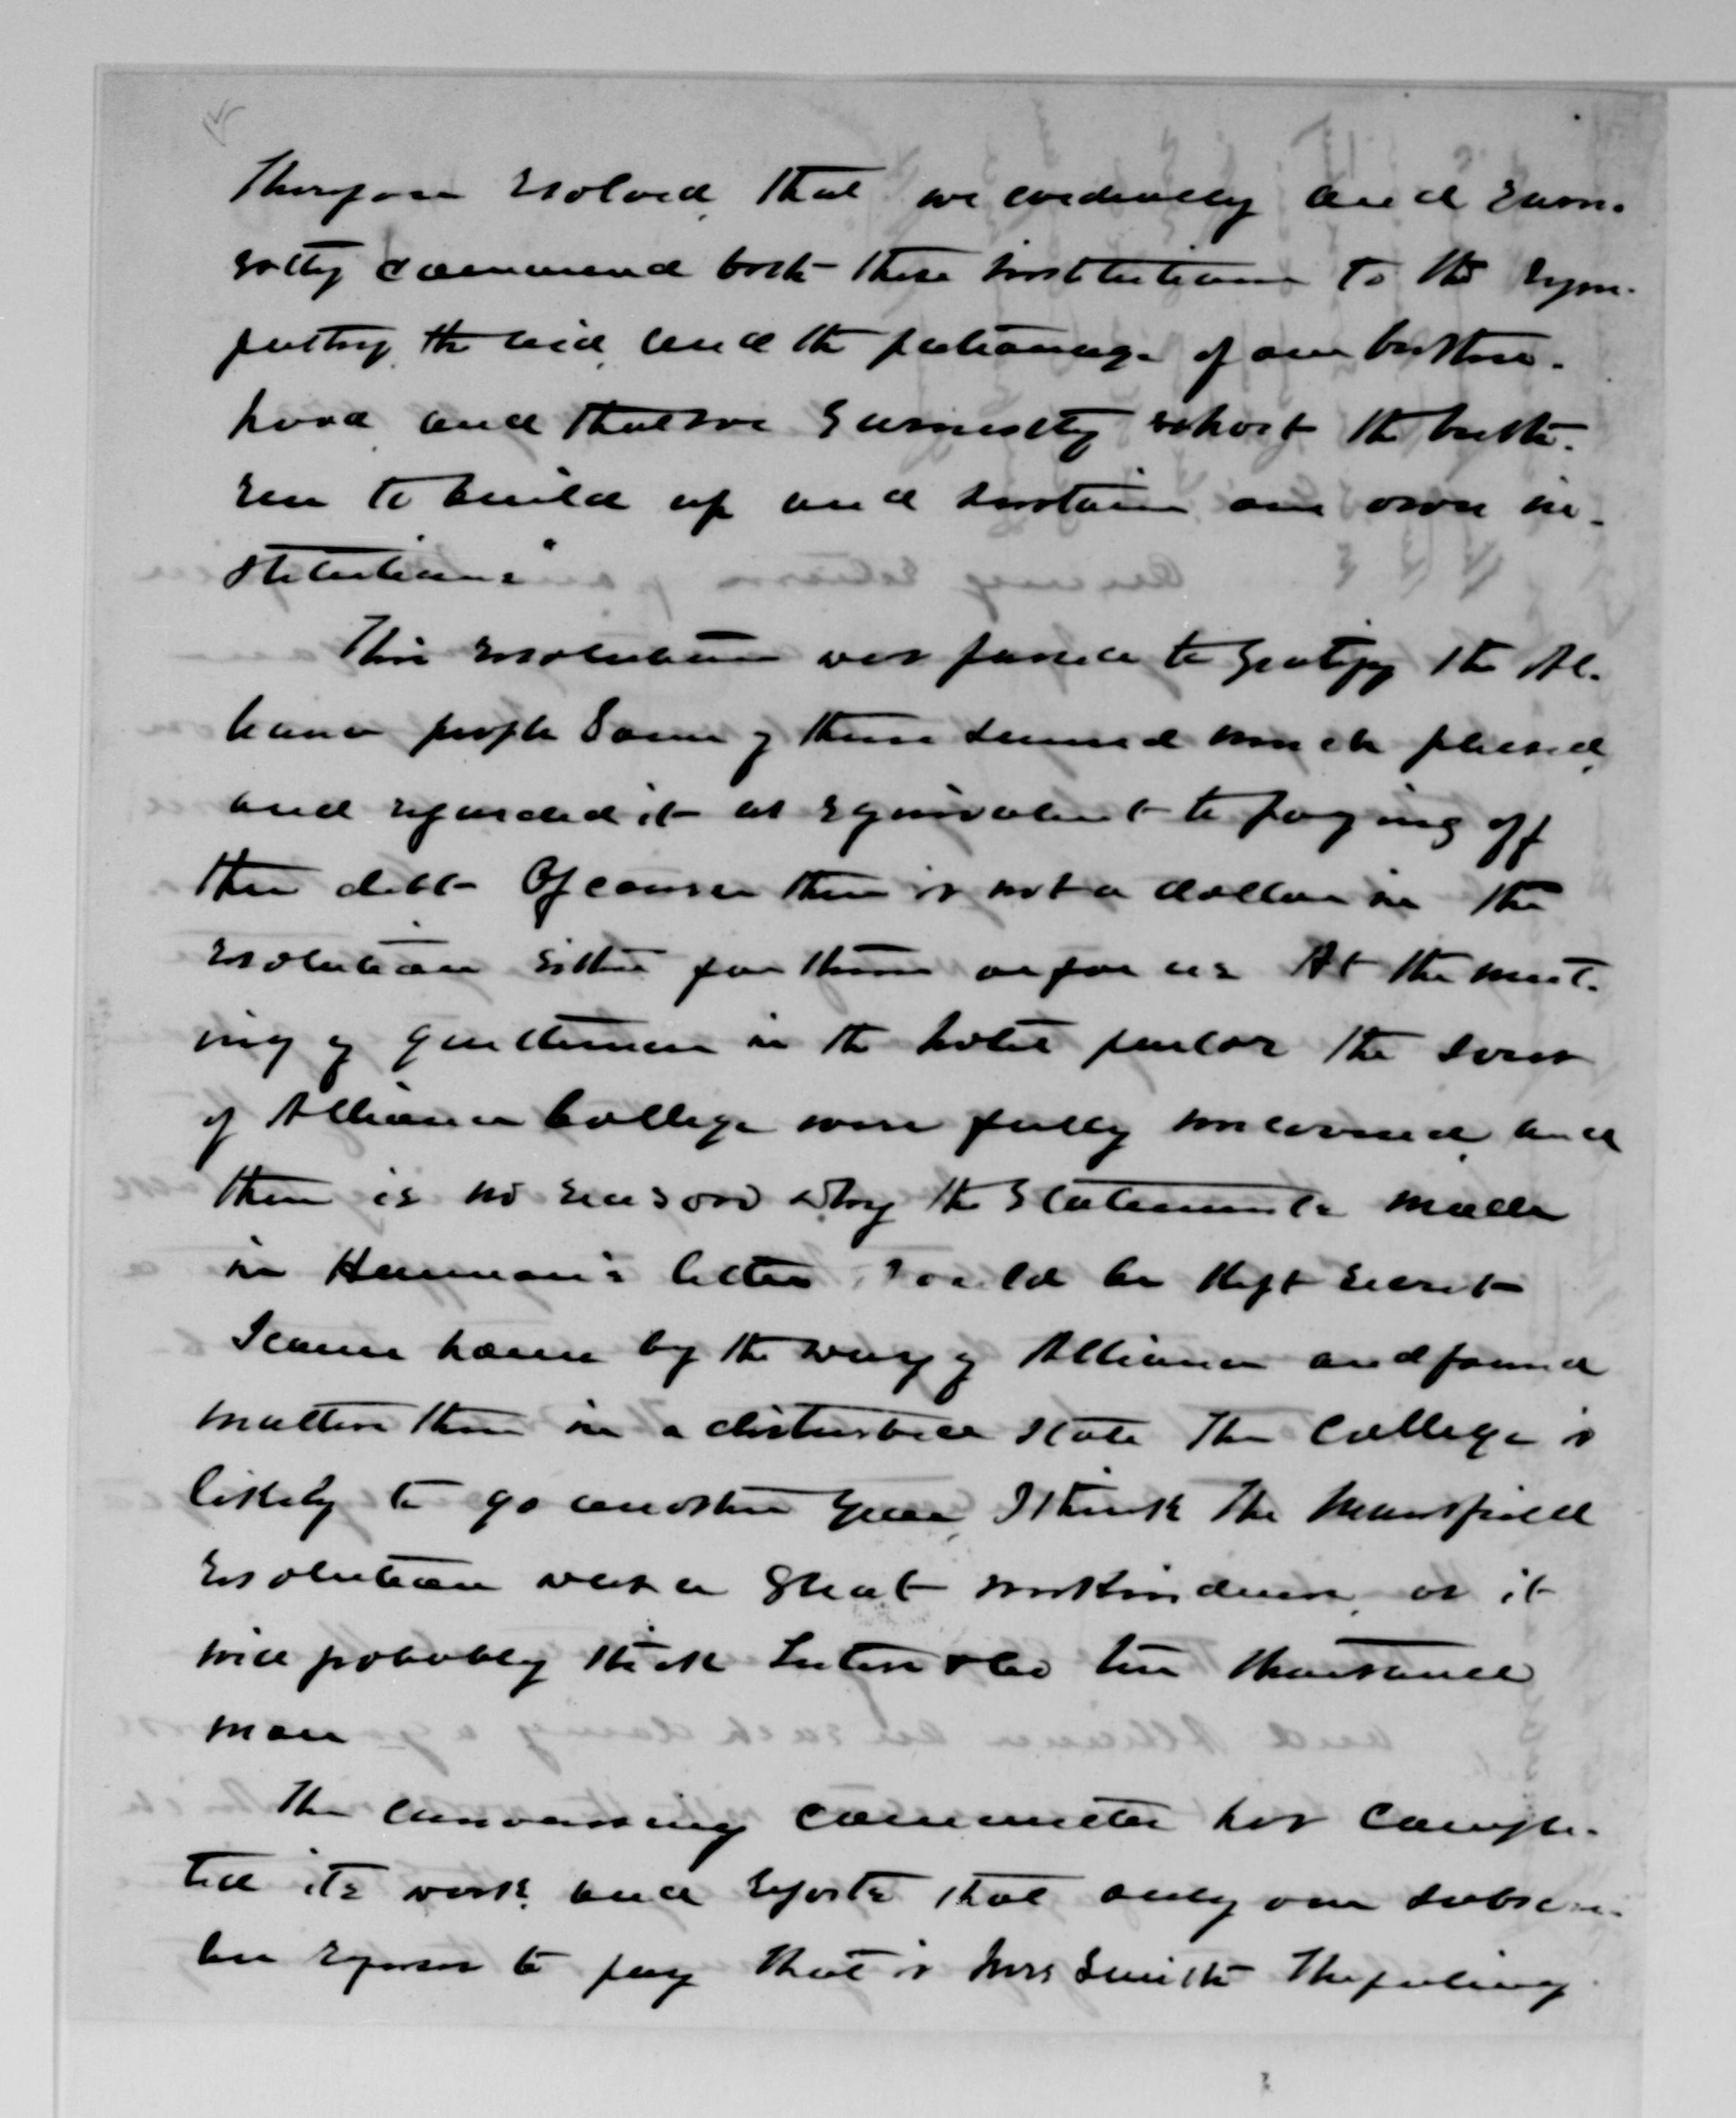 Therefore resolved, that we cordially and earn-
estly commend both these institutions to the sym-
pathy, the aid, and the patronage of our brother-
hood and that we earnestly exhort the breth-
ren to build up and sustain our own in-
stitutions"
This resolution was passed to gratify the Al-
liance people Some of them seemed much pleased,
and regarded it as equivalent to paying off
their debt Of course there is not a dollar in the
resolution either for them or for us At the meet-
ing of gentlemen in the hotel parlor the sores
of Alliance College were fully uncovered, and
there is no reason why the statements made
in Harmon's letter should be kept secret
I came home by the way of Alliance and found
matters there in a disturbed state The College is
likely to go another year, I think the Mansfield
resolution was a great unkindness, as it
will probably stick the ten thousand
man
The canvassing committee has comple-
ted its work, and reports that only one subscri-
ber refuses to pay that is Mrs Smith The feeling